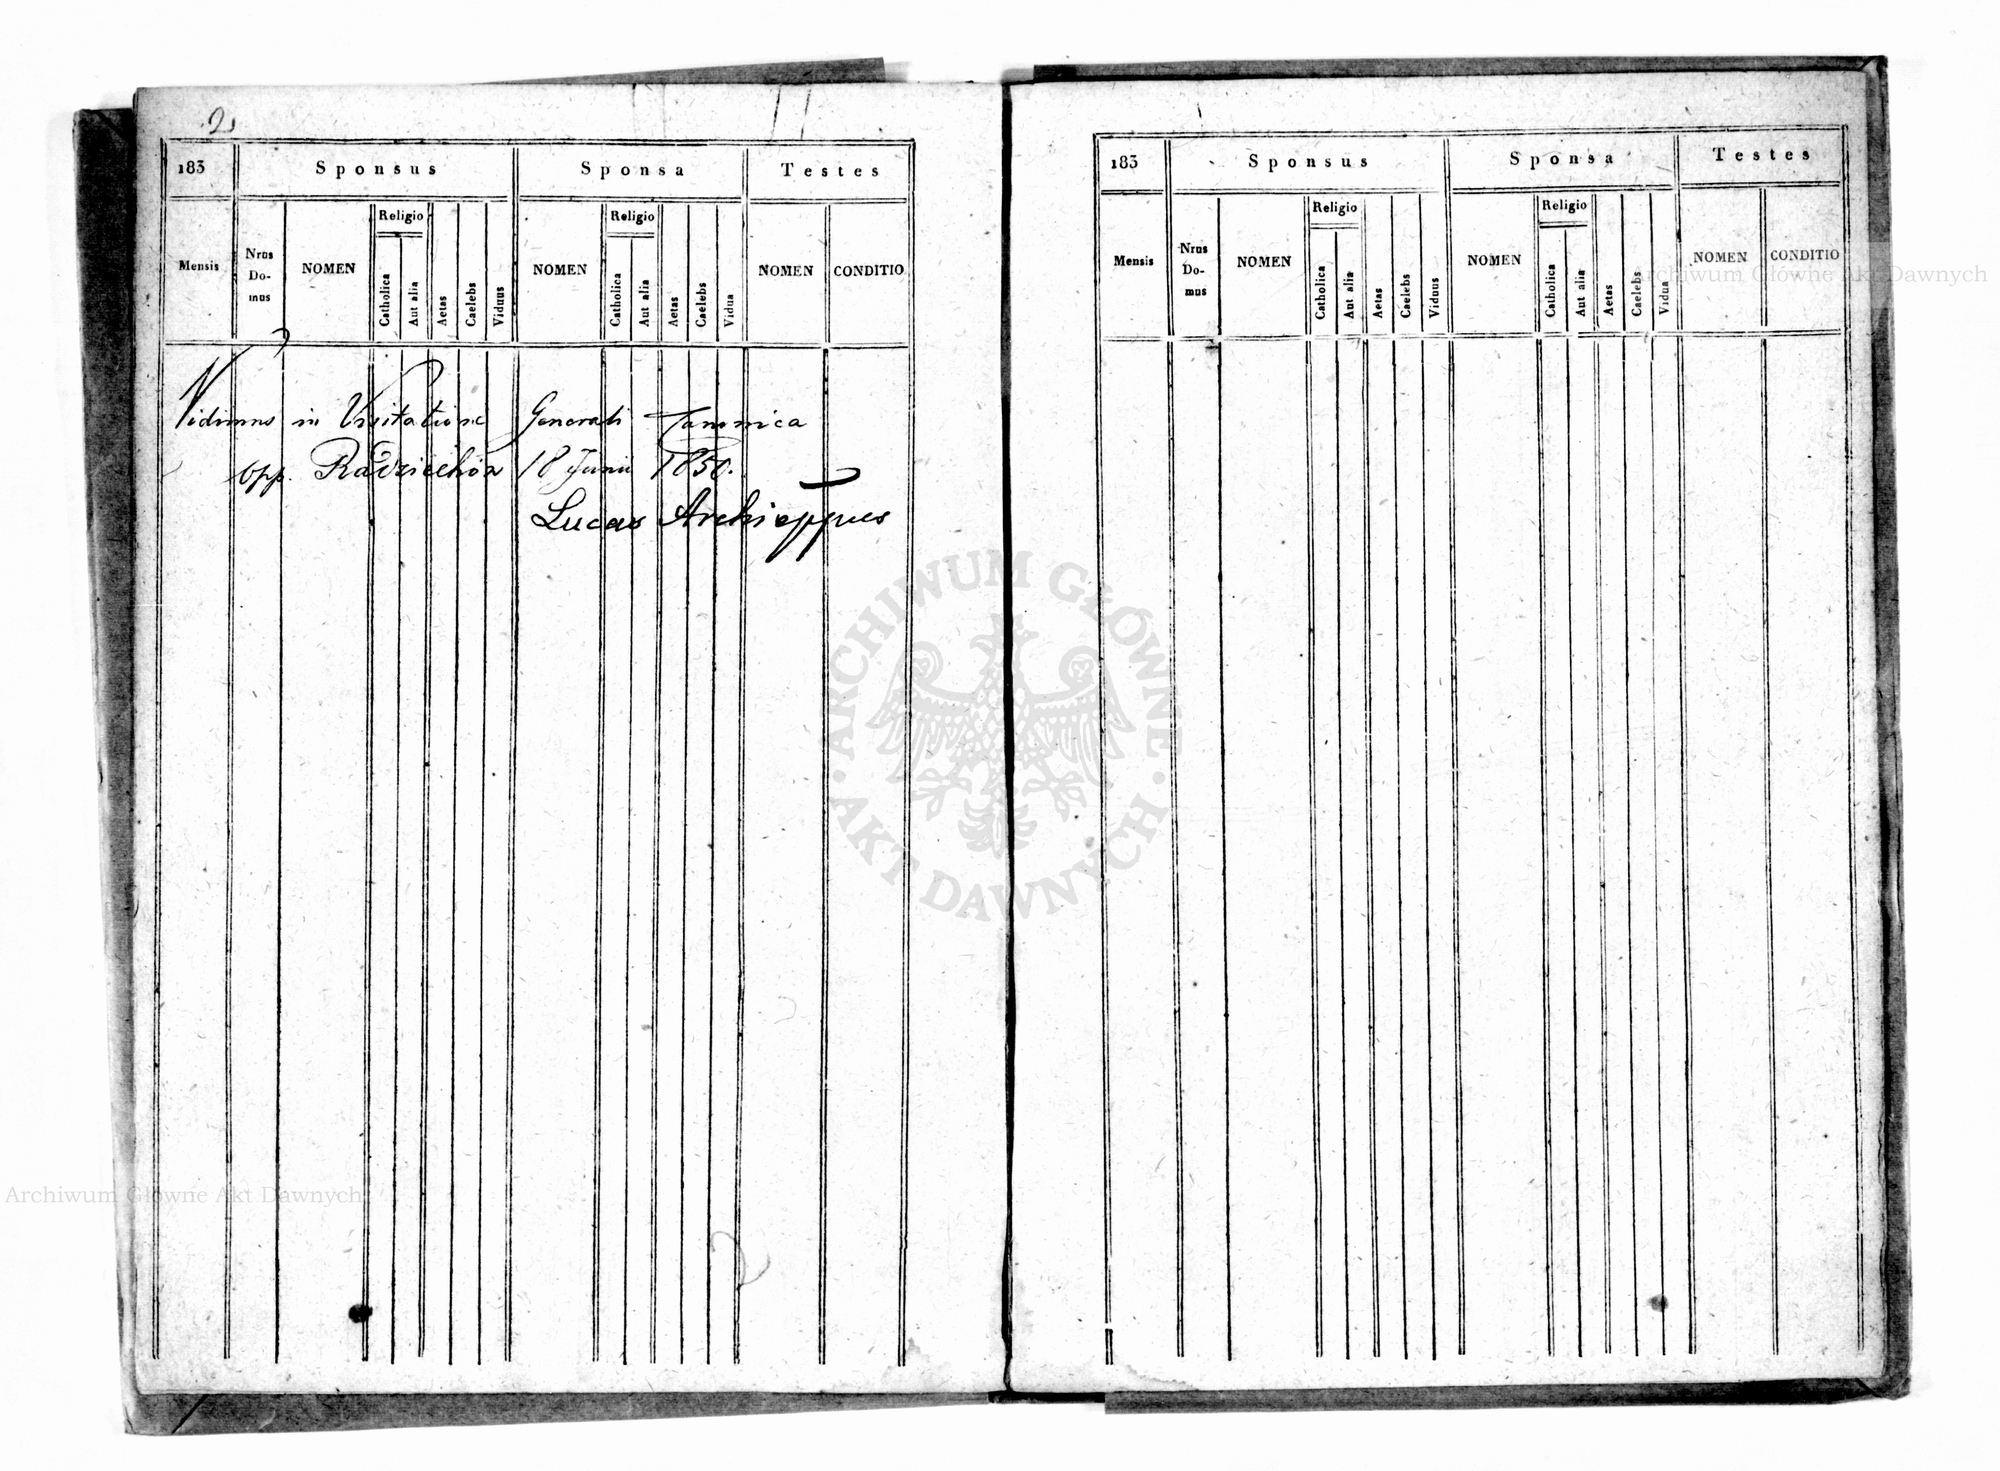 2
183
Sponsus
Sponsa
Testes
Mensis
Nrus Do- mus
NOMEN
Religio
Catholica
Aut alia
Aetas
Caelebs
Viduus
NOMEN
Religio
Catholica
Aut alia
Aetas
Caelebs
Vidua
NOMEN
CONDITIO
Vidimus in Visitatione Generali Canonica
opp. Radziechów 18 Junii 1850.
Lucas Archieppus
183
Sponsus
Sponsa
Testes
Mensis
Nrus Do- mus
NOMEN
Religio
Catholica
Aut alia
Aetas
Caelebs
Viduus
NOMEN
Religio
Catholica
Aut alia
Aetas
Caelebs
Vidua
NOMEN
CONDITIO
Archiwum Główne Akt Dawnych
ARCHIWUM GŁÓWNE
AKT DAWNYCH
Archiwum Główne Akt Dawnych